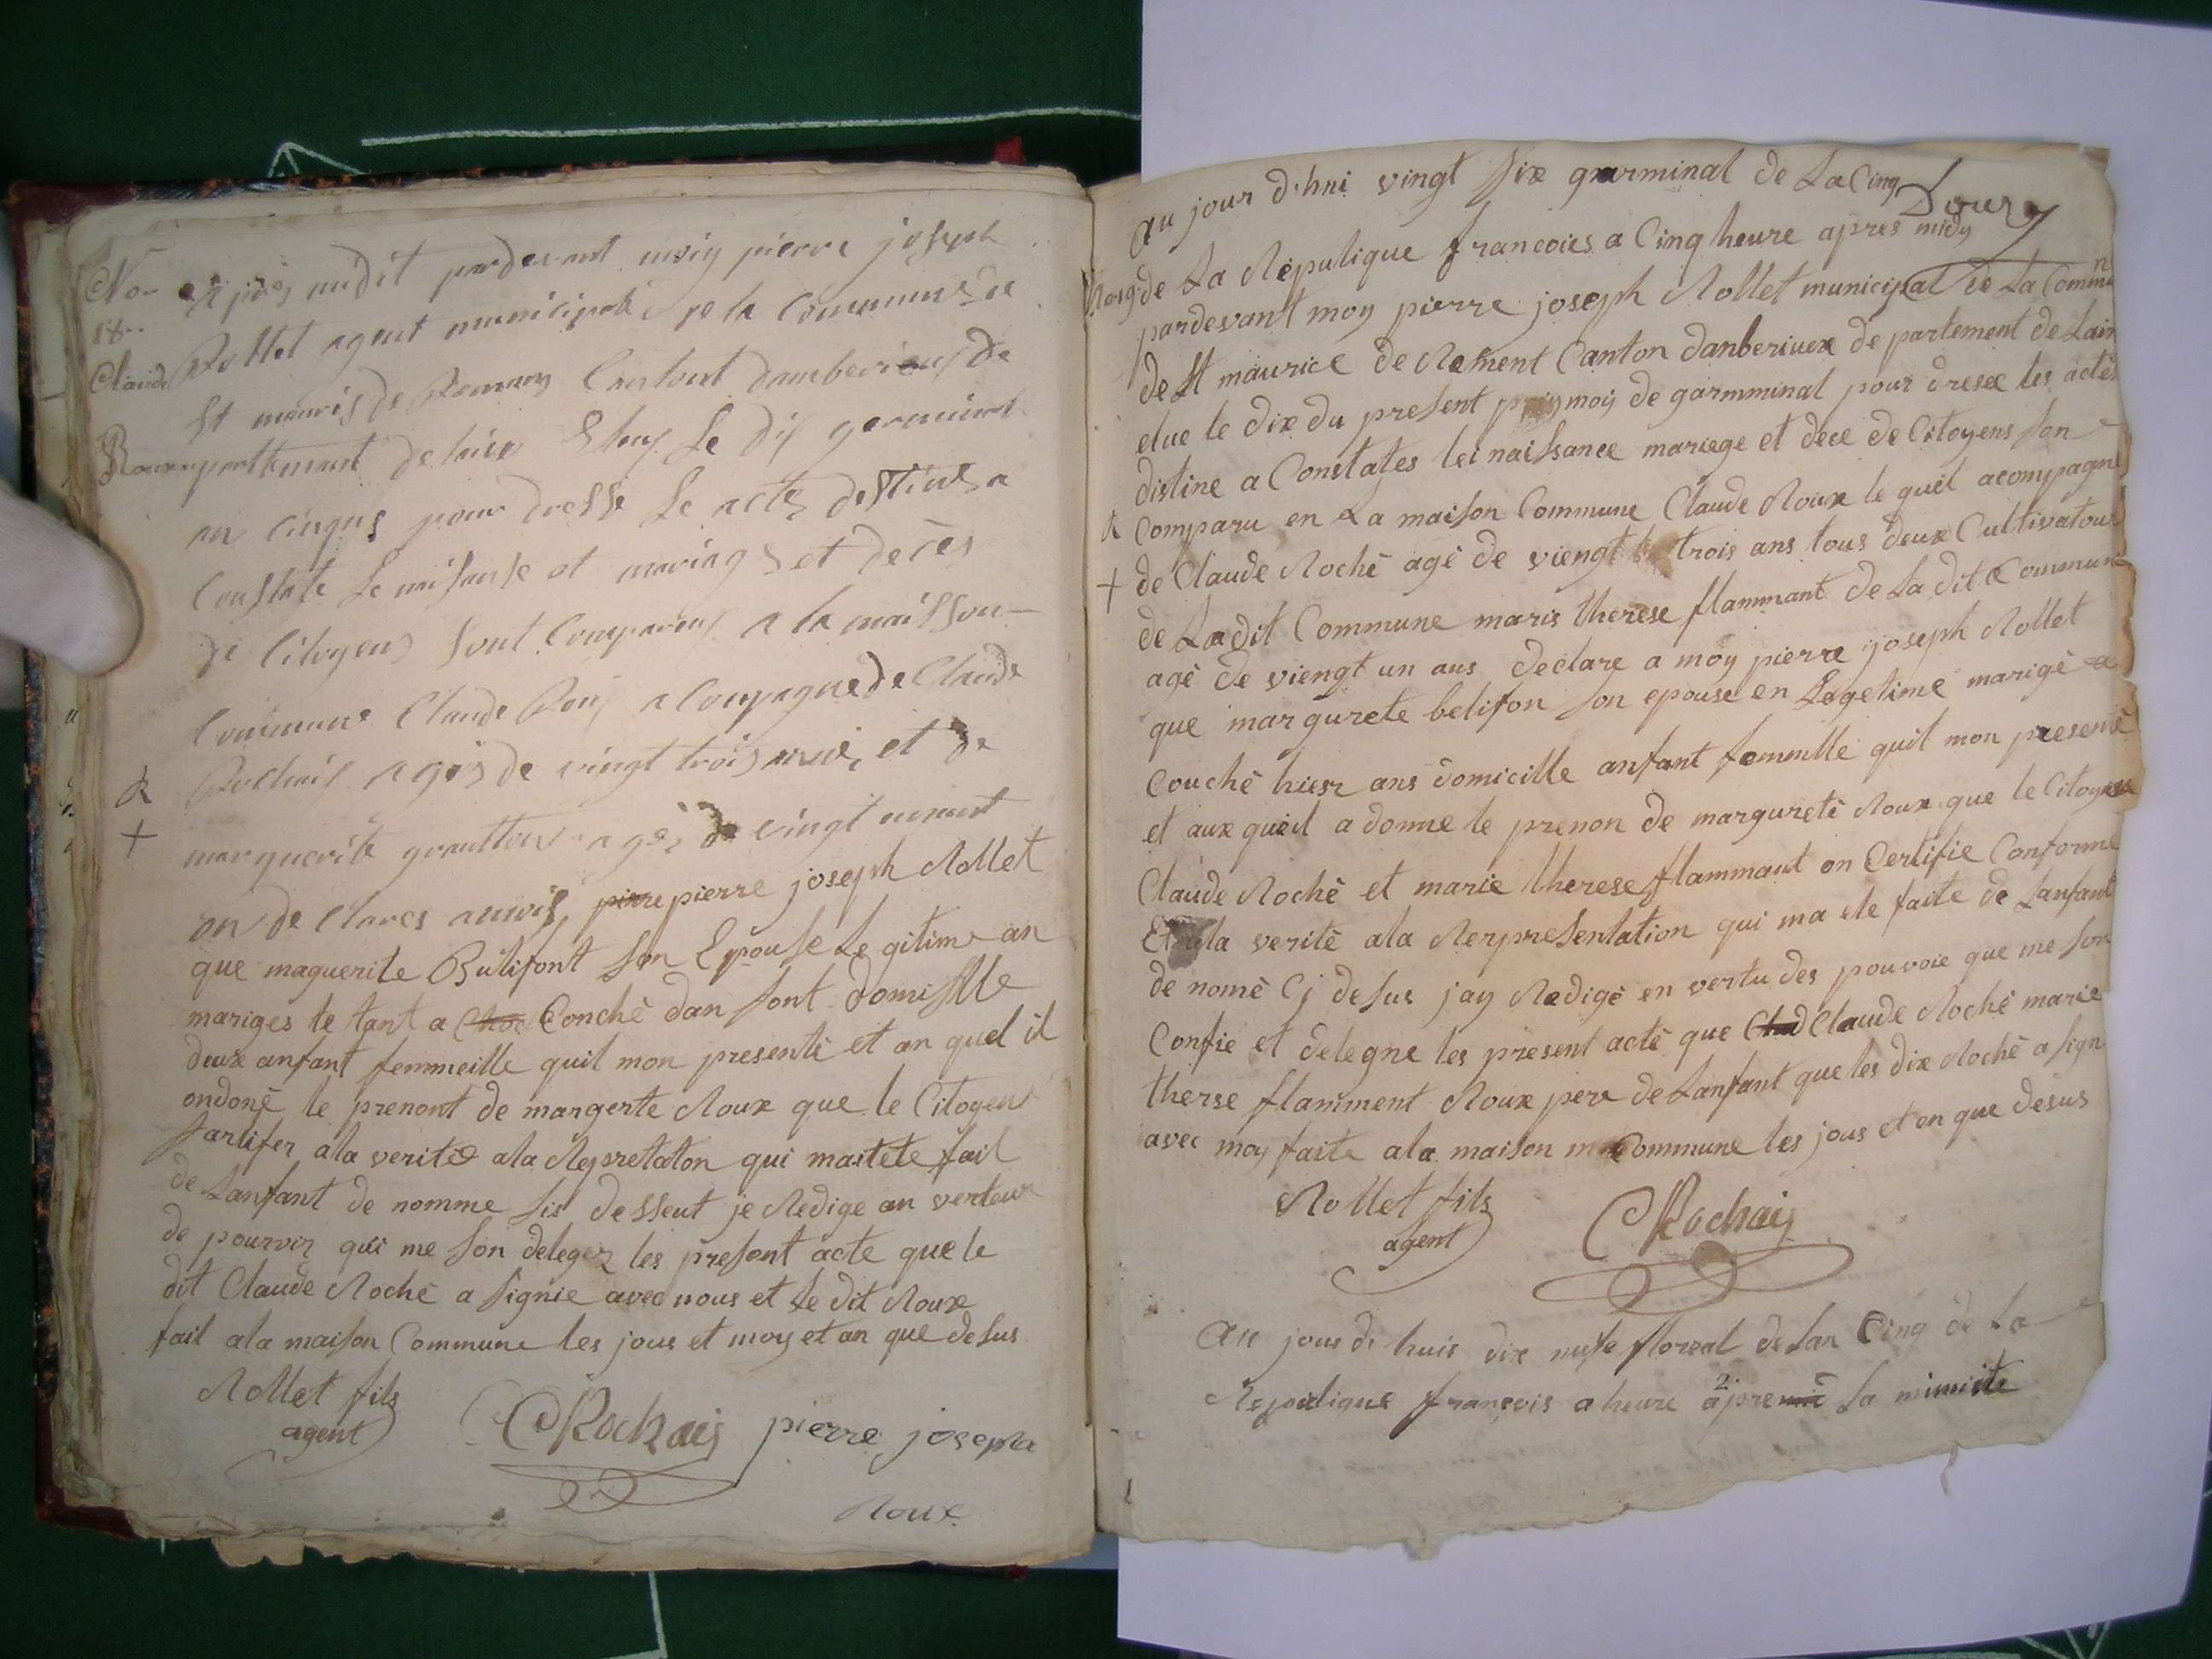 No
18
Claude
Roux
apres midit pardevant moiy pierre joseph
Rollet agent municipale de la Commune de
St mauris de Remans Cantont damberieux de
partement de lain Eleuz Le dix germinal
an cinque pour dresse Le acte destine a
Constate Le naisanse et mariage et deces
de Citoyens sont Compareus a la maisson
Commune Claude Roux acompagne de Claude
R
Rochais ages de vingt trois et de
+
marguerite age de vingt
on de clares a moi pirre pierre joseph Rollet
que maguerite Bulifont son Epouse Legitime an
mariges te tant a Couché dan sont domisille
deux anfant femmeille quil mon presenté et an quel il
ondoné le prenont de margerte Roux que le Citoyen
sartifer ala verité ala Repretaton qui ma etete fait
de Lanfant de nomme sis desseut je Redige an verteur
de pourvir qui me son deleger les present acte que le
dit Claude Roché a signie avec nous et le dit Roux
fait ala maison Commune les jous et moy et an que desus
Rollet fils
agent
CRochais pierre joseph
Roux
au jour d'hui vingt six garminal de La Cinq
Rosg
de La Republique francoies a Cinq heure apres midy
pardevant moy pierre joseph Rollet municipal de La Commun
de St maurice de Rement Canton danberiuex de partement de Lain
elue le dix du present moy de garmminal pour dresee les actes
distine a Constates lei naissance mariege et dece de Citoyens son
R
Comparu en La maison Commune Claude Roux le quel acompagné
+
de Claude Roché agé de viengt trois ans tous deux Cultivatour
de Ladit Commune maris therese flammant de La dit Commune
agé de viengt un ans declare a moy pierre joseph Rollet
que margurete belifon son epouse en Legetime marigé a
Couché hiesr ans domicille anfant femmlle quil mon presenté
et aux queil a donne le prenon de margureté Roux que le Citoyens
Claude Roché et marie therese flammant on Certifie Conforme
Et ala verité ala Rerpresentation qui ma ete faite de Lanfant
de nomé Cj desus jay Redigé en vertu des pouvoie que me son
Confie et delegne les present acté que Claude Roché marie
therse flamment Roux pere de Lanfant que les dix Roché a sign
avec moy faite ala maison Commune les jous et en que desus
Rollet fils
agent
CRochais
Au jour di huis dix nufe floreal de Lan Cinq de La
Repulique françois a heure 2 apremié La miniute